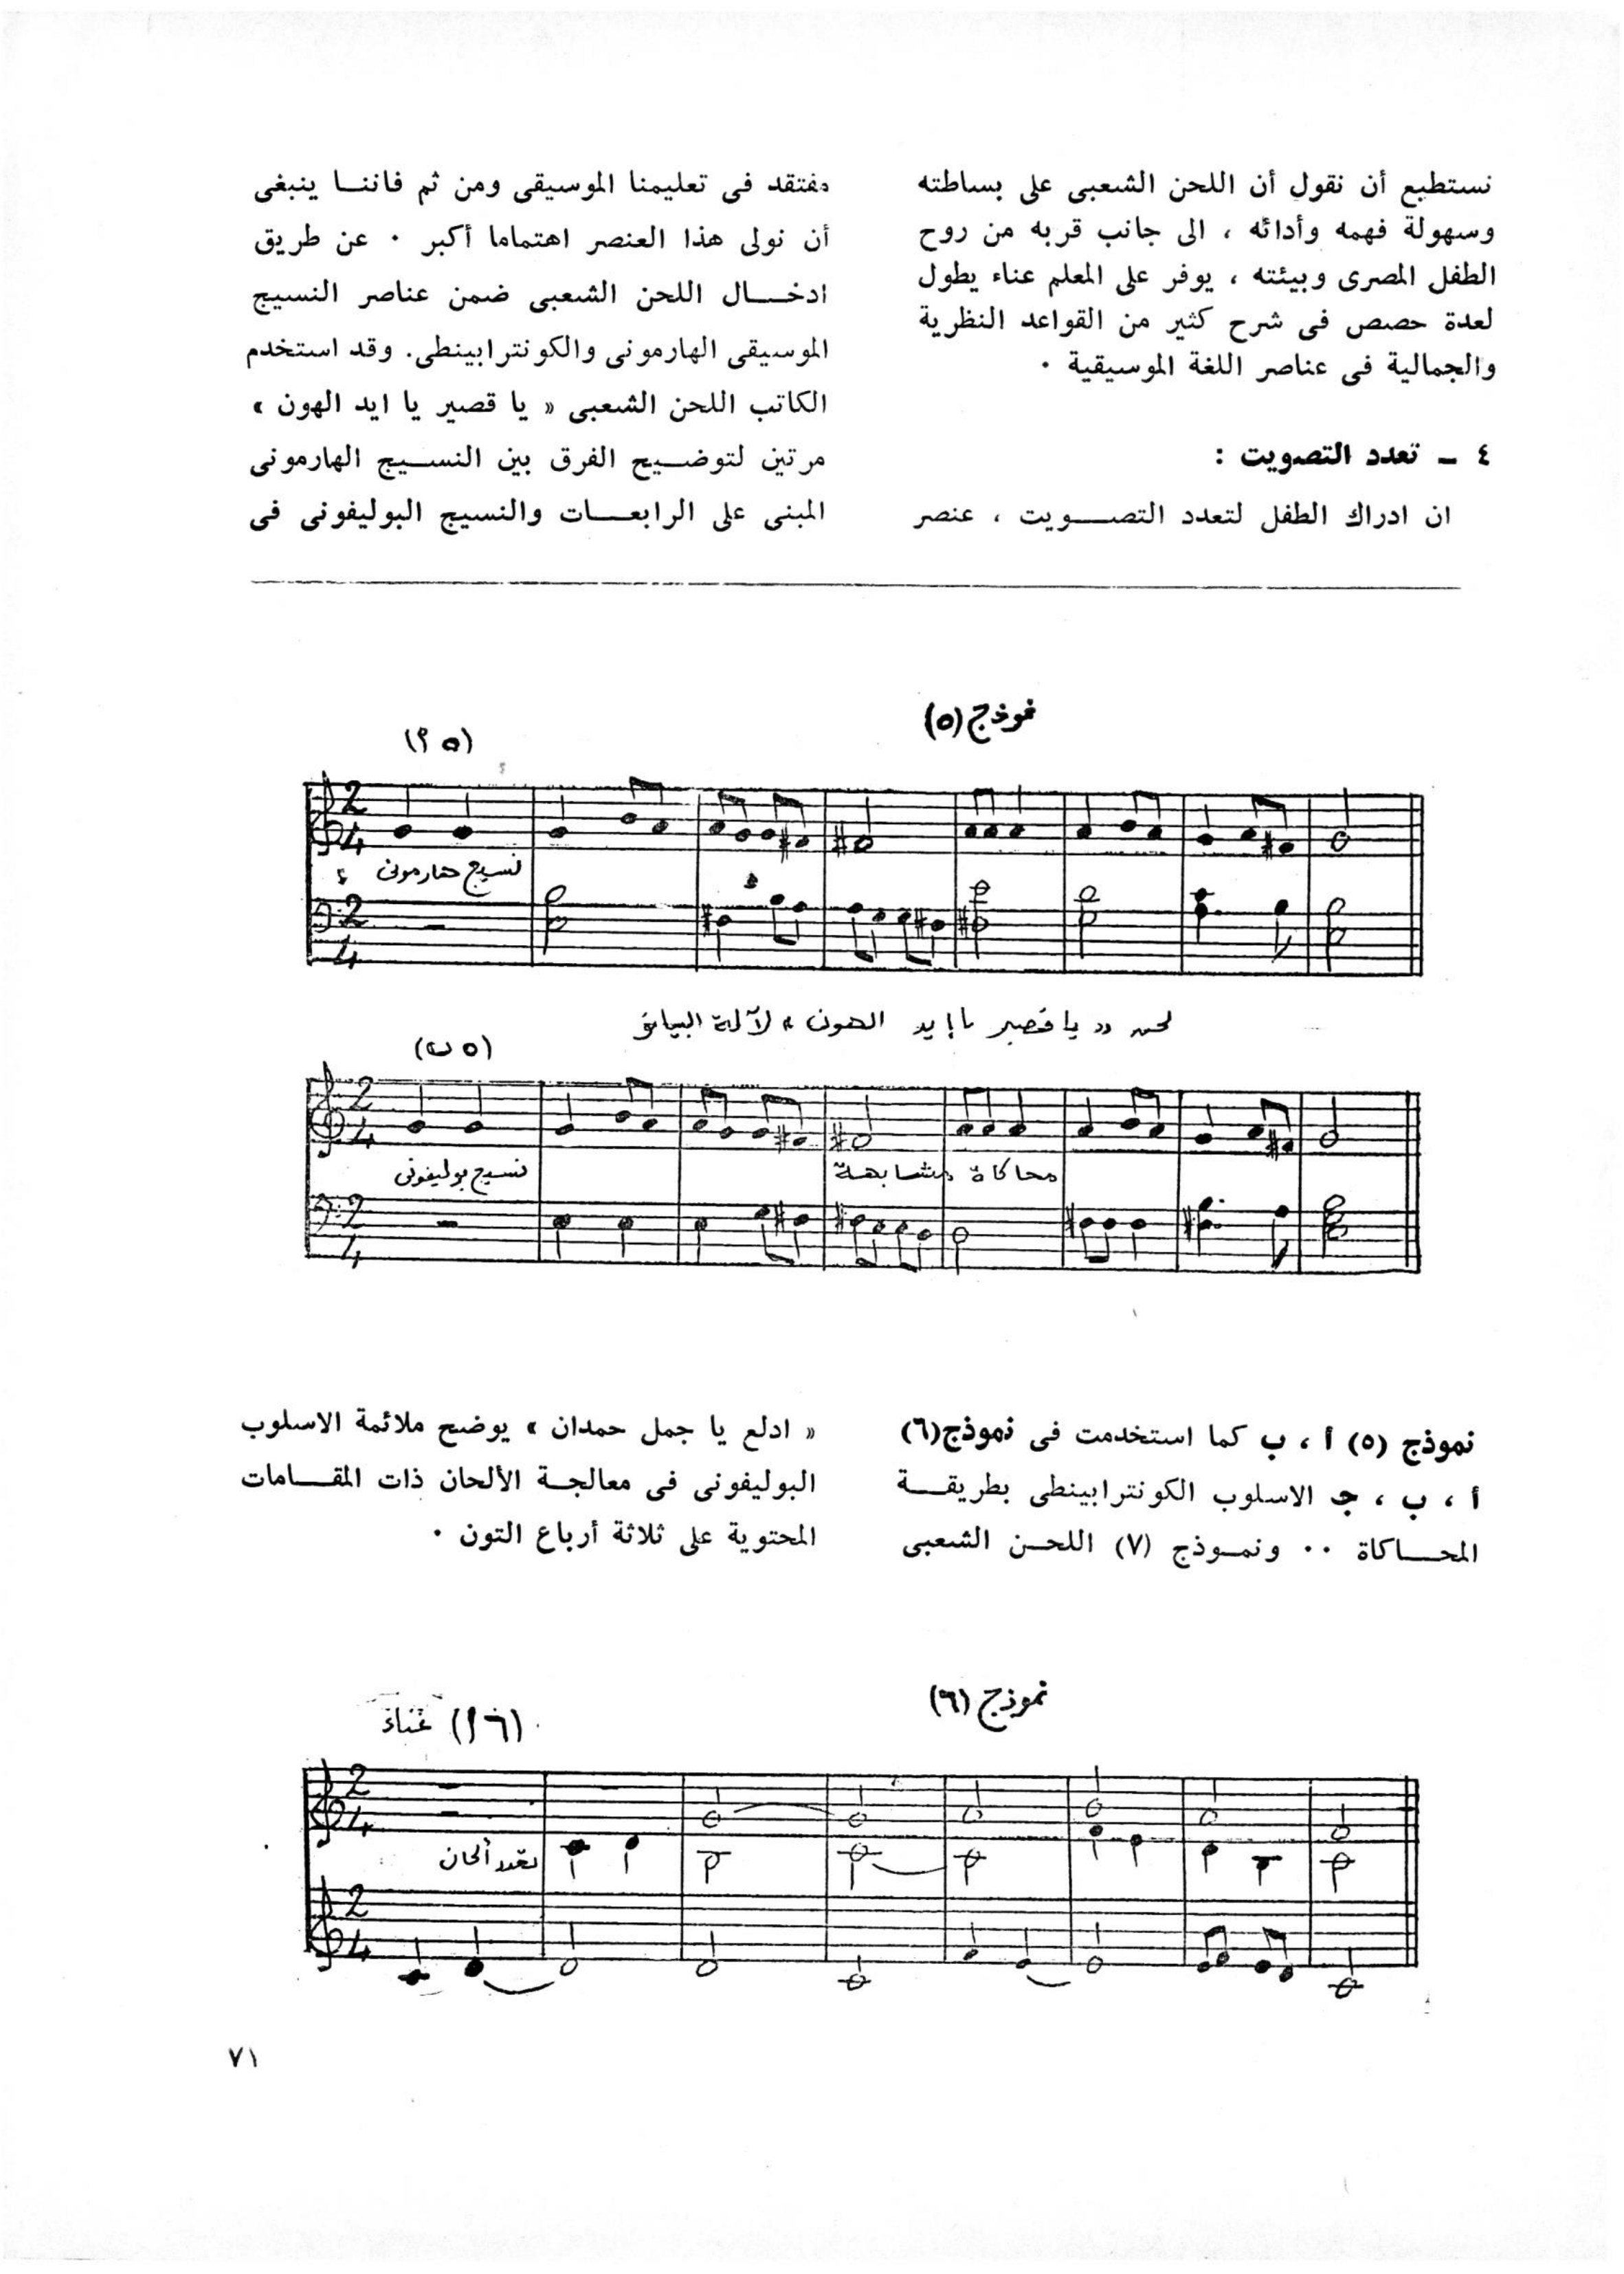 نستطيع أن نقول أن اللحن الشعبى على بساطته
وسهولة فهمه وأدائه ، الى جانب قربه من روح
الطفل المصرى وبيئته ، يوفر على المعلم عناء يطول
لعدة حصص فى شرح كثير من القواعد النظرية
والجمالية فى عناصر اللغة الموسيقية ٠
٤ ـ تعدد التصويت :
ان ادراك الطفل لتعدد التصـــويت ، عنصر
مفتقد فى تعليمنا الموسيقى ومن ثم فاننــا ينبغى
أن نولى هذا العنصر اهتماما أكبر ٠ عن طريق
ادخـــال اللحن الشعبى ضمن عناصر النسيج
الموسيقى الهارمونى والكونترابينطى. وقد استخدم
الكاتب اللحن الشعبى « يا قصير يا ايد الهون »
مرتين لتوضــيح الفرق بين النســيج الهارمونى
المبنى على الرابعـــات والنسيج البوليفونى فى
نموذج (٥)
(٥ أ)
2
4
نسيج هارمونى
2
4
لحن « يا قصير يا إيد الهون » لآلة البيانو
(٥ ب)
2
4
نسيج بوليفونى
محاكاة مشابهة
2
4
نموذج (٥) أ ، ب كما استخدمت فى نموذج(٦)
أ ، ب ، جـ الاسلوب الكونترابينطى بطريقــة
المحـــاكاة ٠٠ ونمــوذج (٧) اللحــن الشعبى
« ادلع يا جمل حمدان » يوضح ملائمة الاسلوب
البوليفونى فى معالجــة الألحان ذات المقـــامات
المحتوية على ثلاثة أرباع التون ٠
نموذج (٦)
(٦ أ) غناء
2
4
تعدد ألحان
2
4
٧١